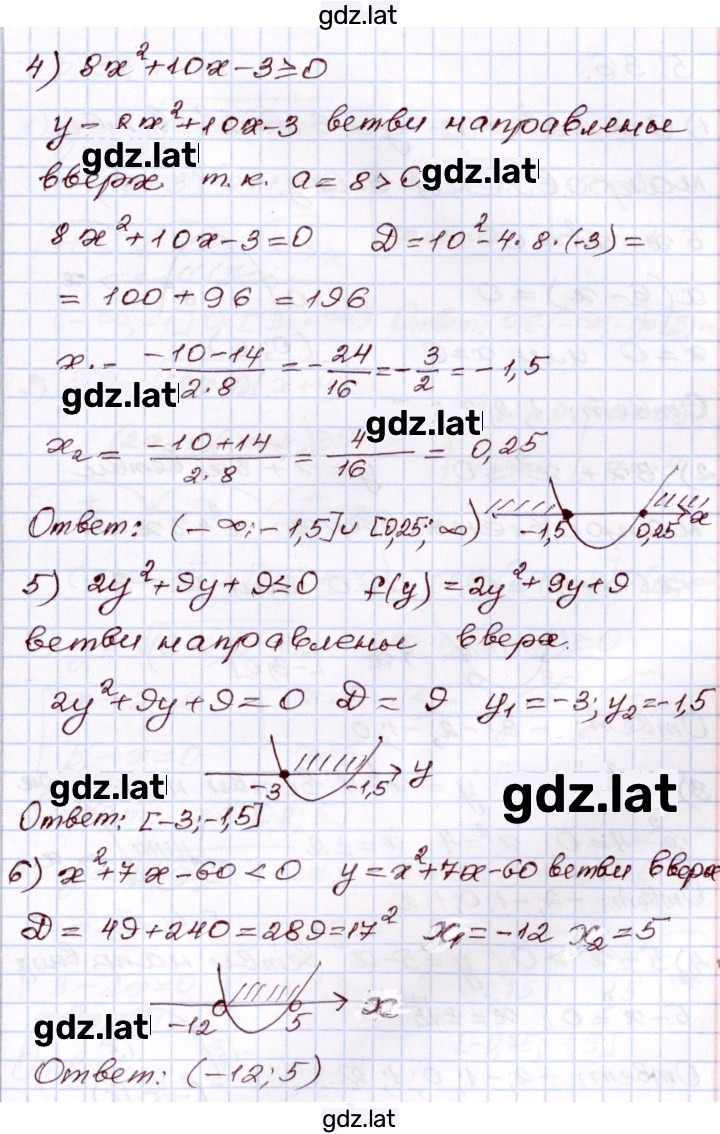 gdz.lat
4) 8x²+10x-3≥0
y = 8x²+10x-3 ветви направлены
gdz.lat
вверх т.к. a = 8 > 0
gdz.lat
8x²+10x-3=0 D=10²-4·8·(-3)=
= 100+96 = 196
x₁ = (-10-14)/(2·8) = -24/16 = -3/2 = -1,5
gdz.lat
gdz.lat
x₂ = (-10+14)/(2·8) = 4/16 = 0,25
Ответ: (-∞;-1,5]∪[0,25;∞)
-1,5 0,25 x
5) 2y²+9y+9≤0 f(y)=2y²+9y+9
ветви направлены вверх.
2y²+9y+9=0 D = 9 y₁=-3; y₂=-1,5
-3 -1,5 y
gdz.lat
gdz.lat
Ответ: [-3;-1,5]
6) x²+7x-60<0 y=x²+7x-60 ветви вверх
D = 49+240=289=17² x₁=-12 x₂=5
-12 5 x
gdz.lat
Ответ: (-12;5)
gdz.lat